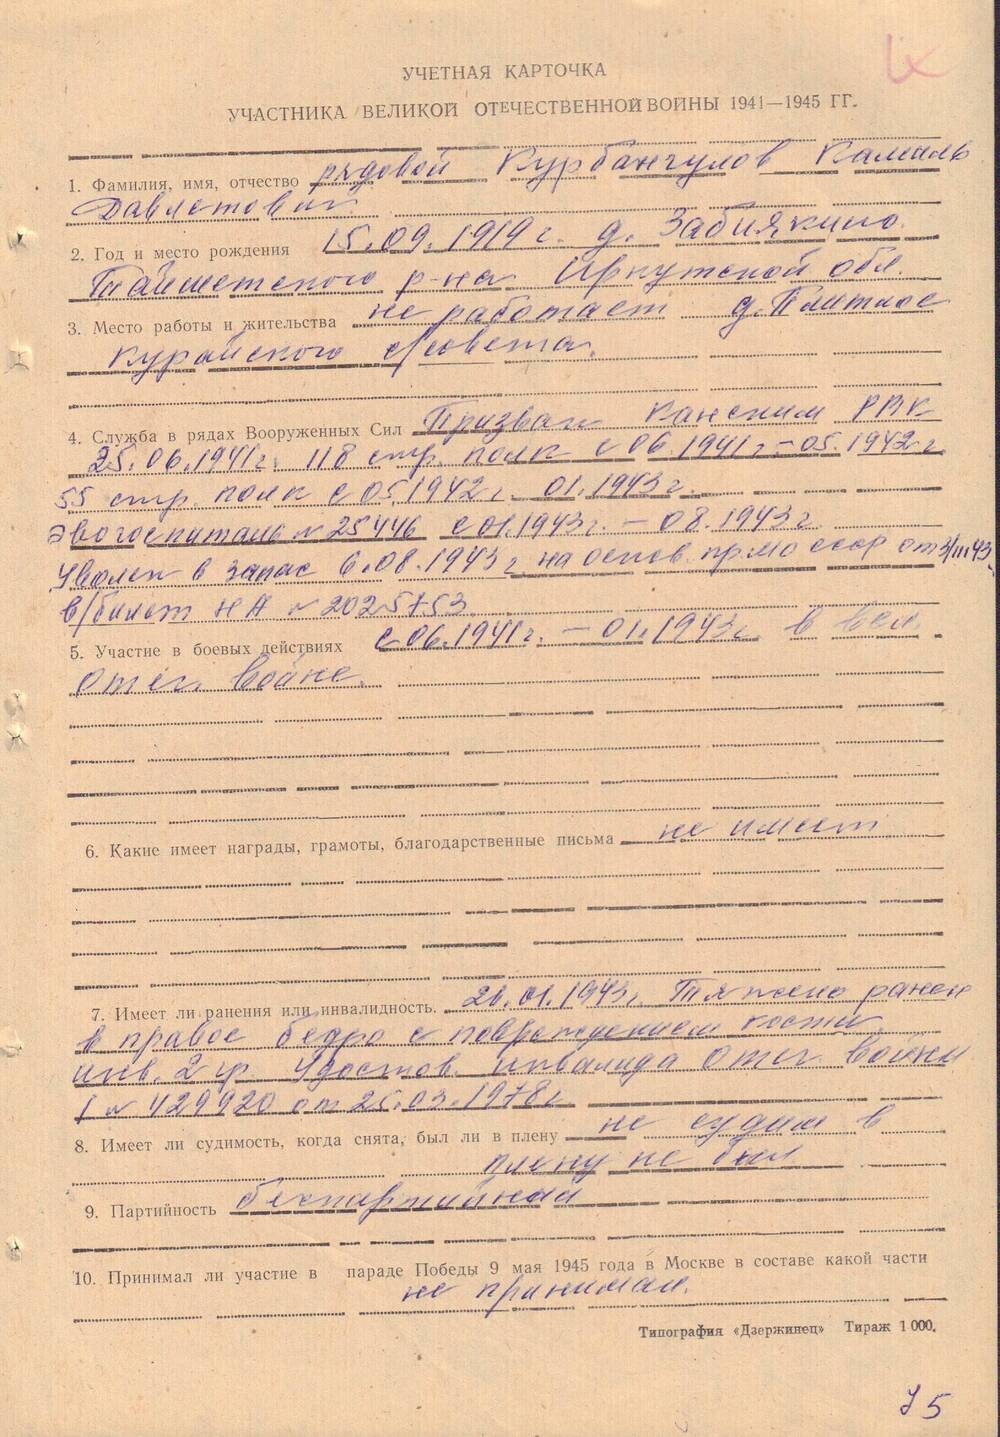 УЧЕТНАЯ КАРТОЧКА
УЧАСТНИКА ВЕЛИКОЙ ОТЕЧЕСТВЕННОЙ ВОЙНЫ 1941—1945 ГГ.
1. Фамилия, имя, отчество рядовой Курбангулов Камиль
Давлетович
2. Год и место рождения 15.09.1919 г. д. Забиякино
Тайшетского р-на Иркутской обл.
3. Место работы и жительства не работает д. Плитное
Курайского с/совета.
4. Служба в рядах Вооруженных Сил Призван Канским РВК
25.06.1941 г. 118 стр. полк с 06.1941 г. — 05.1942 г
55 стр. полк с 05.1942 г. 01.1943 г.
Эвогоспиталь № 25446 с 01.1943 г. — 08.1943 г
Уволен в запас 6.08.1943 г на основ. пр. МО СССР от 3/III 43
в/билет НА № 2025753
5. Участие в боевых действиях с 06.1941 г. — 01.1943 г в вел.
отеч. войне.
6. Какие имеет награды, грамоты, благодарственные письма не имеет
7. Имеет ли ранения или инвалидность. 21.01.1943 г. Тяжело ранен
в правое бедро с повреждением кости
инв. 2 гр. Удостов. инвалида Отеч. войны
I № 429920 от 25.03.1978 г
8. Имеет ли судимость, когда снята, был ли в плену не судим в
плену не был
9. Партийность беспартийный
10. Принимал ли участие в параде Победы 9 мая 1945 года в Москве в составе какой части
не принимал.
Типография «Дзержинец» Тираж 1 000.
75